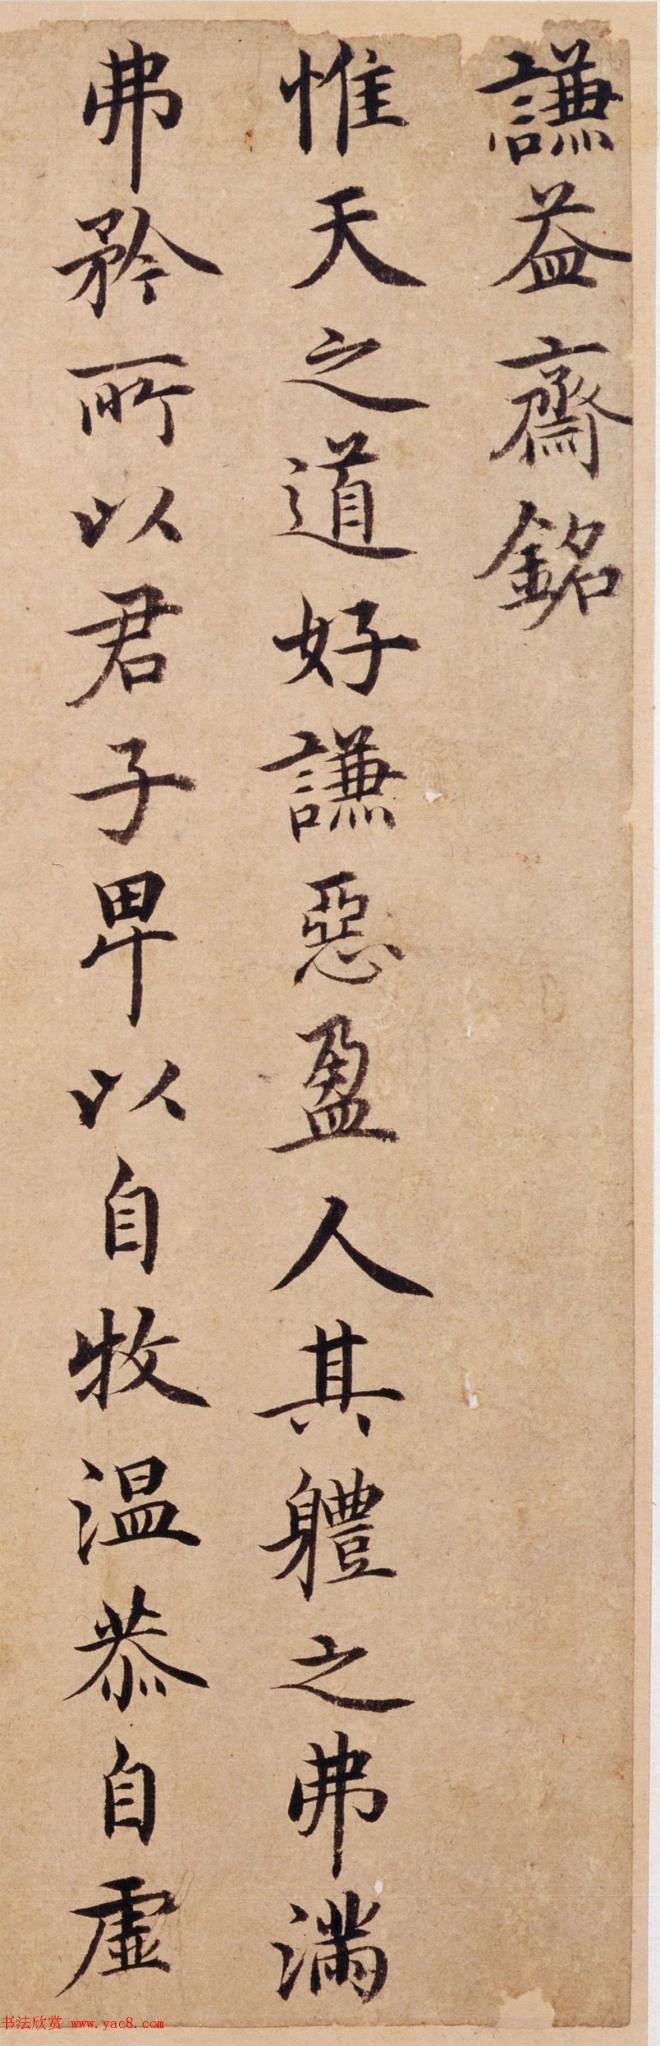 謙益齋銘
惟天之道好謙惡盈人其軆之弗滿
弗矜所以君子卑以自牧温恭自虛
书法欣赏 www.yac8.com